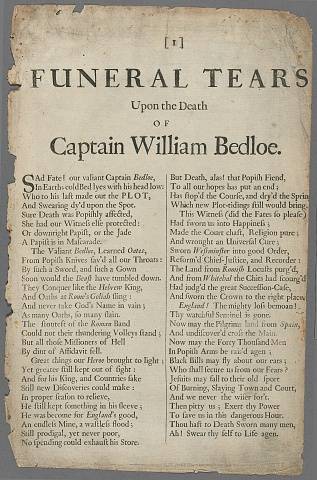 [1]
FUNERAL TEARS
Upon the Death
OF
Captain William Bedloe.
SAd Fate! our valiant Captain Bedloe,
In Earths cold Bed lyes with his head low:
Who to his last made out the PLOT,
And Swearing dy'd upon the Spot.
Sure Death was Popishly affected,
She had our Witness else protected:
Or downright Papist, or the Jade
A Papist is in Mascarade.
The Valiant Bedloe, Learned Oates,
From Popish Knives sav'd all our Throats:
By such a Sword, and such a Gown
Soon would the Beast have tumbled down.
They Conquer like the Hebrew King,
And Oaths at Rome's Goliah sling:
And never take God's Name in vain;
As many Oaths, so many slain.
The stoutest of the Roman Band
Could not their thundering Volleys stand;
But all those Missioners of Hell
By dint of Affidavit fell.
Great things our Heroe brought to light;
Yet greater still kept out of sight:
And for his King, and Countries sake
Still new Discoveries could make:
In proper season to relieve,
He still kept something in his sleeve;
He was become for England's good,
An endless Mine, a wasteless flood;
Still prodigal, yet never poor,
No spending could exhaust his Store.
But Death, alas! that Popish Fiend,
To all our hopes has put an end;
Has stop'd the Course, and dry'd the Spring
Which new Plot-tidings still would bring.
This Witness (did the Fates so please)
Had sworn us into Happiness;
Made the Court chast, Religion pure;
And wrought an Universal Cure;
Sworn Westminster into good Order,
Reform'd Chief-Justice, and Recorder:
The Land from Romish Locusts purg'd,
And from Whitehal the Chits had scourg'd
Had judg'd the great Succession-Case,
And sworn the Crown to the right place.
England! The mighty loss bemoan!
Thy watchful Sentinel is gone.
Now may the Pilgrims land from Spain,
And undiscover'd cross the Main.
Now may the Forty Thousand Men
In Popish Arms be rais'd agen;
Black Bills may fly about our ears;
Who shall secure us from our Fears?
Jesuits may fall to their old sport
Of Burning, Slaying Town and Court,
And we never the wiser for't.
Then pitty us; Exert thy Power
To save us in this dangerous Hour.
Thou hast to Death Sworn many men,
Ah! Swear thy self to Life agen.